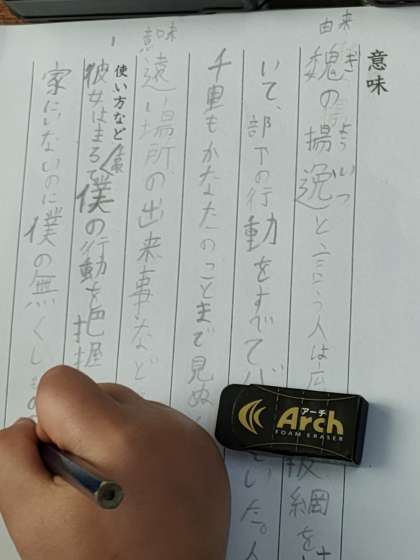 意味
由来
魏の揚逸と言う人は広
ぎ よういつ
いて、部下の行動をすべて
千里もかなたのことまで見ぬ
意味
遠い場所の出来事など
使い方など
彼女はまるで僕の行動を把握
家にいないのに僕の無くしもの
アーチ
Arch
FOAM ERASER